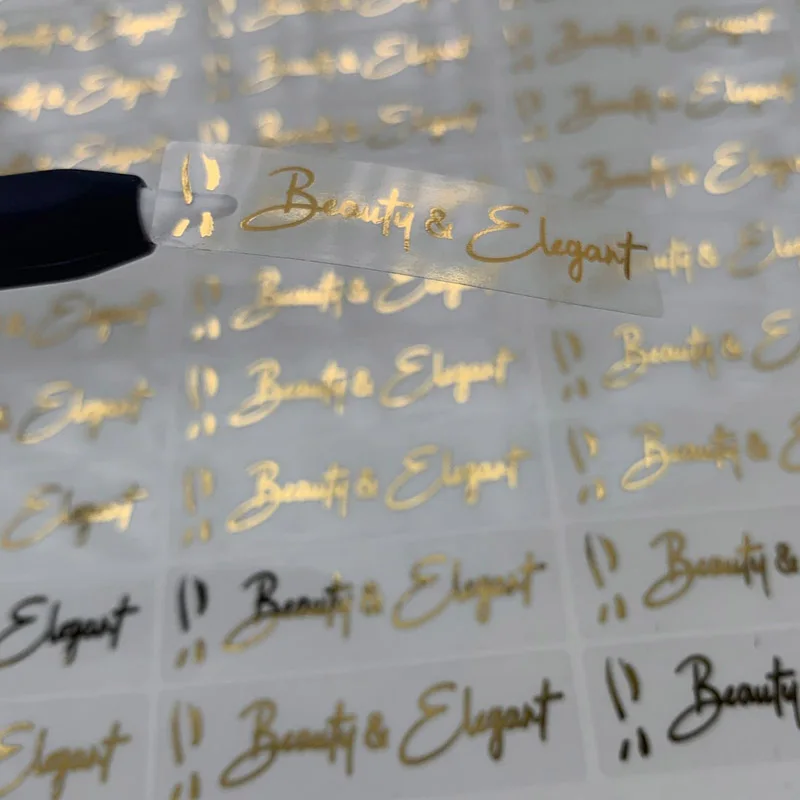 Beauty & Elegant
Beauty & Elegant
Beauty & Elegant
Beauty & Elegant
Beauty & Elegant
Beauty & Elegant
Elegant Beauty &
Elegant Beauty & Elegant Beauty &
Elegant Beauty & Elegant Beauty &
Elegant Beauty & Elegant Beauty &
Elegant Beauty & Elegant Beauty